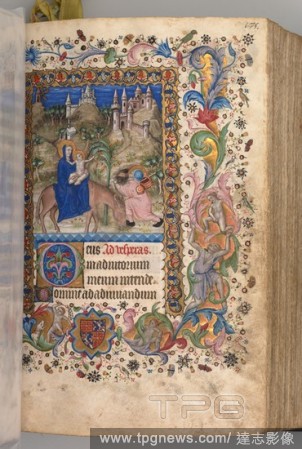 eus Ad vesperas.
in adiutorium
meum intende.
omine ad adiuuandum
TPG
www.tpgnews.com/達志影像